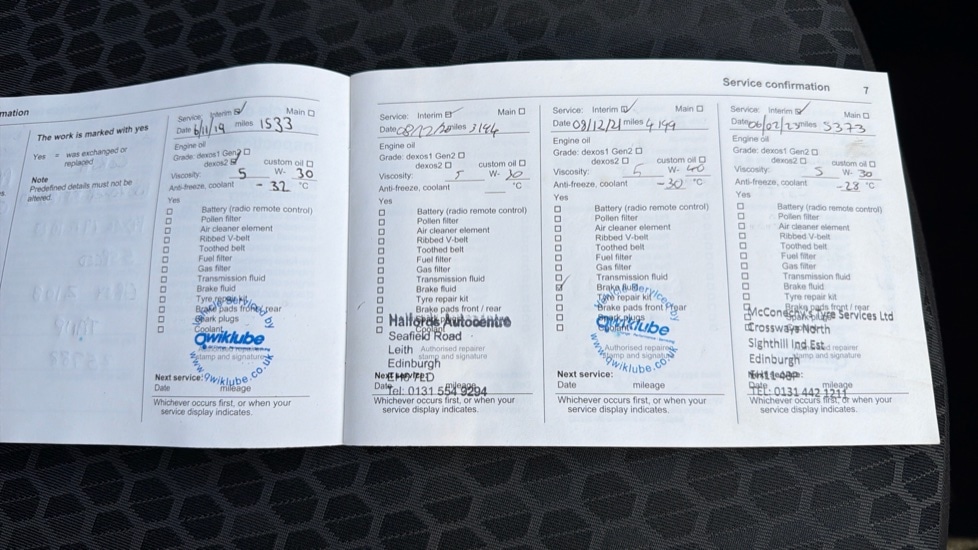 mation
The work is marked with yes
Yes = was exchanged or
replaced
Note
Predefined details must not be
altered.
Service: Interim Main
Date 6/11/19 miles 1533
Engine oil
Grade: dexos1 Gen2
dexos2 custom oil
Viscosity: 5 W- 30
Anti-freeze, coolant - 32 °C
Yes
Battery (radio remote control)
Pollen filter
Air cleaner element
Ribbed V-belt
Toothed belt
Fuel filter
Gas filter
Transmission fluid
Brake fluid
Tyre repair kit
Brake pads front / rear
Spark plugs
Coolant
Vehicle Serviced by
Qwiklube
www.qwiklube.co.uk
stamp and signature
Next service:
Date mileage
Whichever occurs first, or when your
service display indicates.
Service confirmation 7
Service: Interim Main
Date 08/12/20 miles 3144
Engine oil
Grade: dexos1 Gen2
dexos2 custom oil
Viscosity: 5 W-
Anti-freeze, coolant °C
Yes
Battery (radio remote control)
Pollen filter
Air cleaner element
Ribbed V-belt
Toothed belt
Fuel filter
Gas filter
Transmission fluid
Brake fluid
Tyre repair kit
Brake pads front / rear
Halfords Autocentre
Coolant
Seafield Road
Leith Authorised repairer
stamp and signature
Edinburgh
Next service:
EH6 7LD
Date mileage
Tel: 0131 554 9294
Whichever occurs first, or when your
service display indicates.
Service: Interim Main
Date 08/12/21 miles 4199
Engine oil
Grade: dexos1 Gen2
dexos2 custom oil
Viscosity: 5 W- 40
Anti-freeze, coolant -30 °C
Yes
Battery (radio remote control)
Pollen filter
Air cleaner element
Ribbed V-belt
Toothed belt
Fuel filter
Gas filter
Transmission fluid
Brake fluid
Tyre repair kit
Brake pads front / rear
Spark plugs
Coolant
Vehicle Serviced by
Qwiklube
www.qwiklube.co.uk
Authorised repairer
stamp and signature
Next service:
Date mileage
Whichever occurs first, or when your
service display indicates.
Service: Interim Main
Date 06/02/23 miles 5373
Engine oil
Grade: dexos1 Gen2
dexos2 custom oil
Viscosity: 5 W- 30
Anti-freeze, coolant -28 °C
Yes
Battery (radio remote control)
Pollen filter
Air cleaner element
Ribbed V-belt
Toothed belt
Fuel filter
Gas filter
Transmission fluid
Brake fluid
Tyre repair kit
Brake pads front / rear
McConechy's Tyre Services Ltd
Crossway North
Sighthill Ind Est
Edinburgh stamp and signature
Next service:
Date mileage
TEL: 0131 442 1211
Whichever occurs first, or when your
service display indicates.